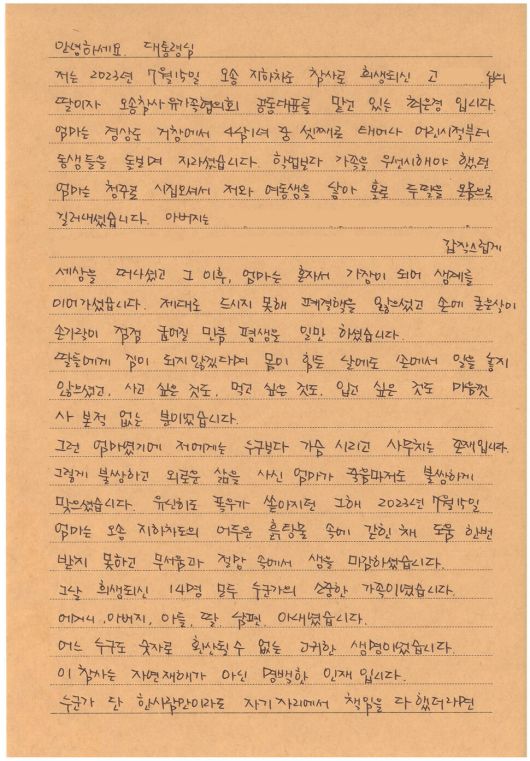 안녕하세요. 대통령님
저는 2023년 7월15일 오송 지하차도 참사로 희생되신 고 님의
딸이자 오송참사 유가족협의회 공동대표를 맡고 있는 최은경 입니다.
엄마는 경상도 거창에서 4남1녀 중 셋째로 태어나 어린시절부터
동생들을 돌보며 자라셨습니다. 학업보다 가족을 우선시해야 했던
엄마는 청주로 시집오셔서 저와 여동생을 낳아 홀로 두딸을 온몸으로
길러내셨습니다. 아버지는
갑작스럽게
세상을 떠나셨고 그 이후, 엄마는 혼자서 가장이 되어 생계를
이어가셨습니다. 제대로 드시지 못해 폐결핵을 앓으셨고 손에 굳은살이
손가락이 점점 굽어질 만큼 평생을 일만 하셨습니다.
딸들에게 짐이 되지않겠다며 몸이 힘든 날에도 손에서 일을 놓지
않으셨고, 사고 싶은 것도, 먹고 싶은 것도, 입고 싶은 것도 마음껏
사 본적 없는 분이셨습니다.
그런 엄마였기에 저에게는 누구보다 가슴 시리고 사무치는 존재입니다.
그렇게 불쌍하고 외로운 삶을 사신 엄마가 죽음마저도 불쌍하게
맞으셨습니다. 유난히도 폭우가 쏟아지던 그해 2023년 7월15일
엄마는 오송 지하차도의 어두운 흙탕물 속에 갇힌채 도움 한번
받지 못하고 무서움과 절망 속에서 생을 마감하셨습니다.
그날 희생되신 14명 모두 누군가의 소중한 가족이였습니다.
어머니, 아버지, 아들, 딸, 남편, 아내였습니다.
어느 누구도 숫자로 환산될수 없는 고귀한 생명이었습니다.
이 참사는 자연재해가 아닌 명백한 인재입니다.
누군가 단 한사람만이라도 자기자리에서 책임을 다했더라면